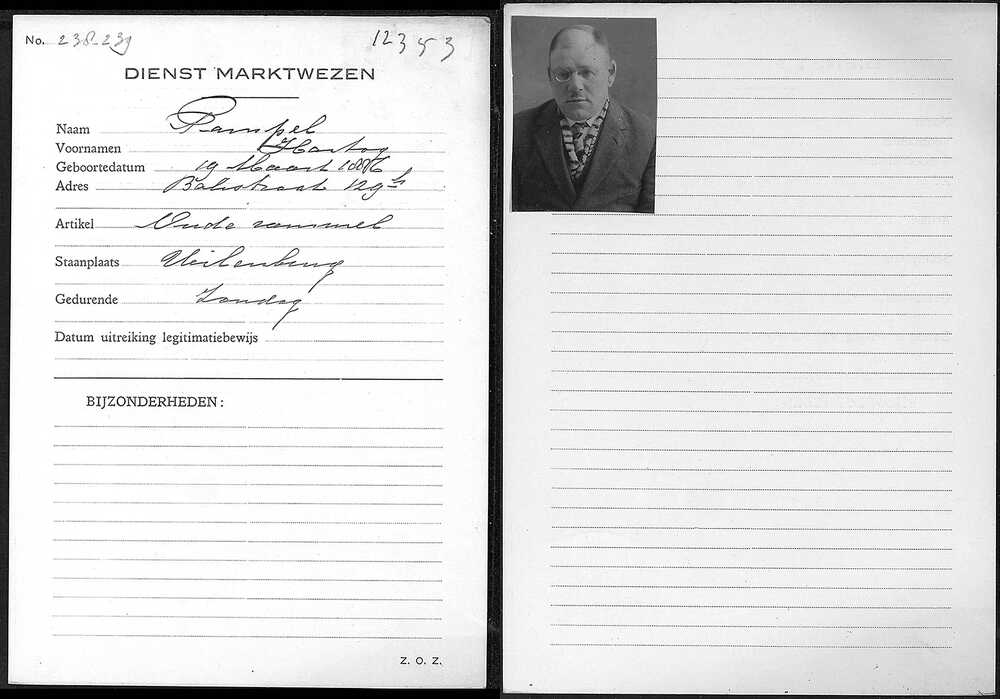 No. 238-239
12353
DIENST MARKTWEZEN
Naam Pampel
Voornamen Hartog
Geboortedatum 19 Maart 1886
Adres Balistraat 129 hs
Artikel Oude rommel
Staanplaats Uilenburg
Gedurende Zondag
Datum uitreiking legitimatiebewijs
BIJZONDERHEDEN:
Z. O. Z.